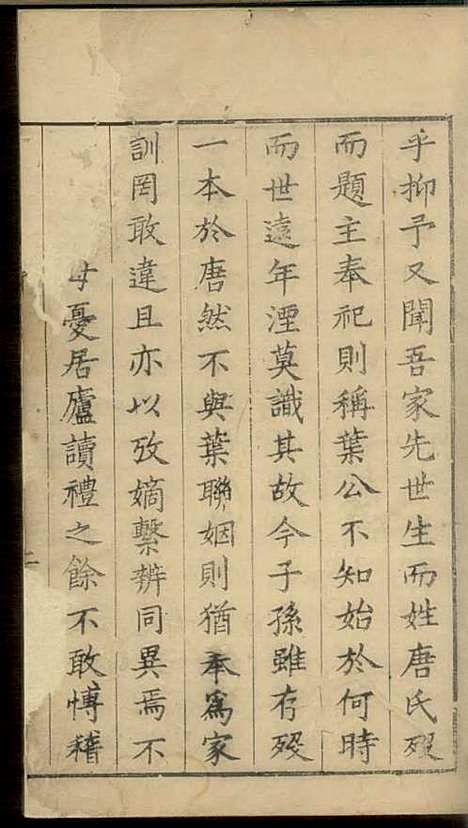 乎抑予又聞吾家先世生而姓唐氏歿
而題主奉祀則稱葉公不知始於何時
而世遠年湮莫識其故今子孫雖存歿
一本於唐然不與葉聯姻則猶本爲家
訓罔敢違且亦以攷嫡繫辨同異焉不
母憂居廬讀禮之餘不敢愽稽